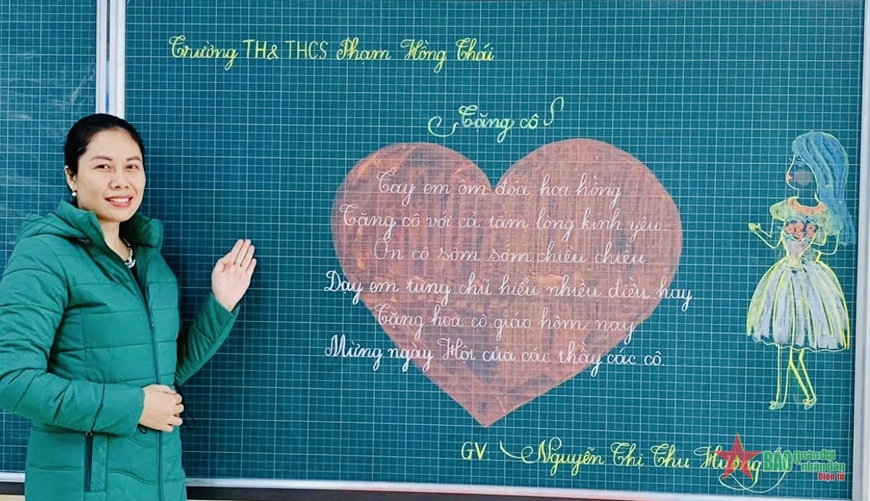 Trường TH& THCS Phạm Hồng Thái
Tặng cô
Tay em ôm đóa hoa hồng
Tặng cô với cả tâm lòng kính yêu.
Ơn cô sớm sớm chiều chiều
Dạy em từng chữ hiểu nhiều điều hay
Tặng hoa cô giáo hôm nay
Mừng ngày Hội của các thầy các cô.
GV: Nguyễn Thi Thu Hương
BÁO quân đội
nhân dân
Điện tử